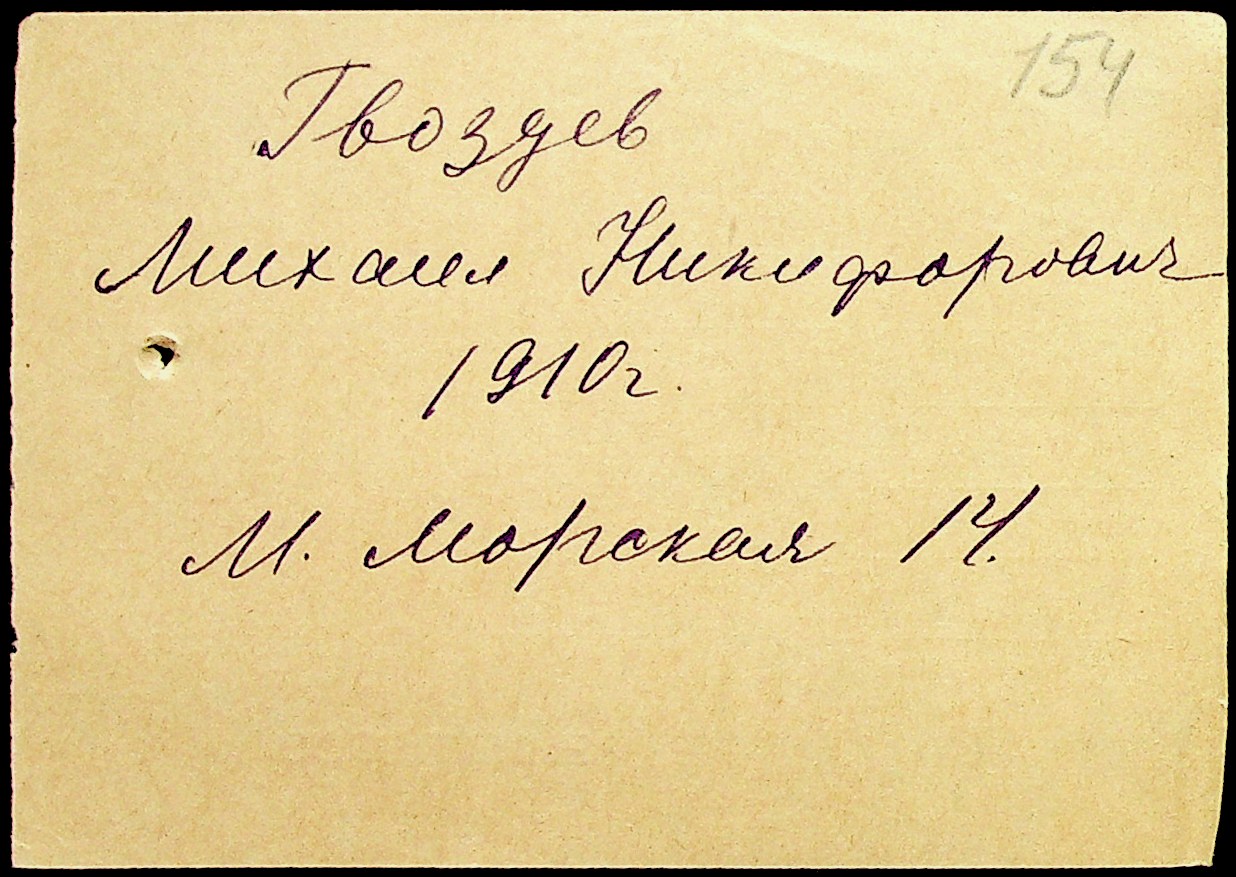 154
Гвоздев
Михаил Никифорович
1910г.
М. Морская 14.